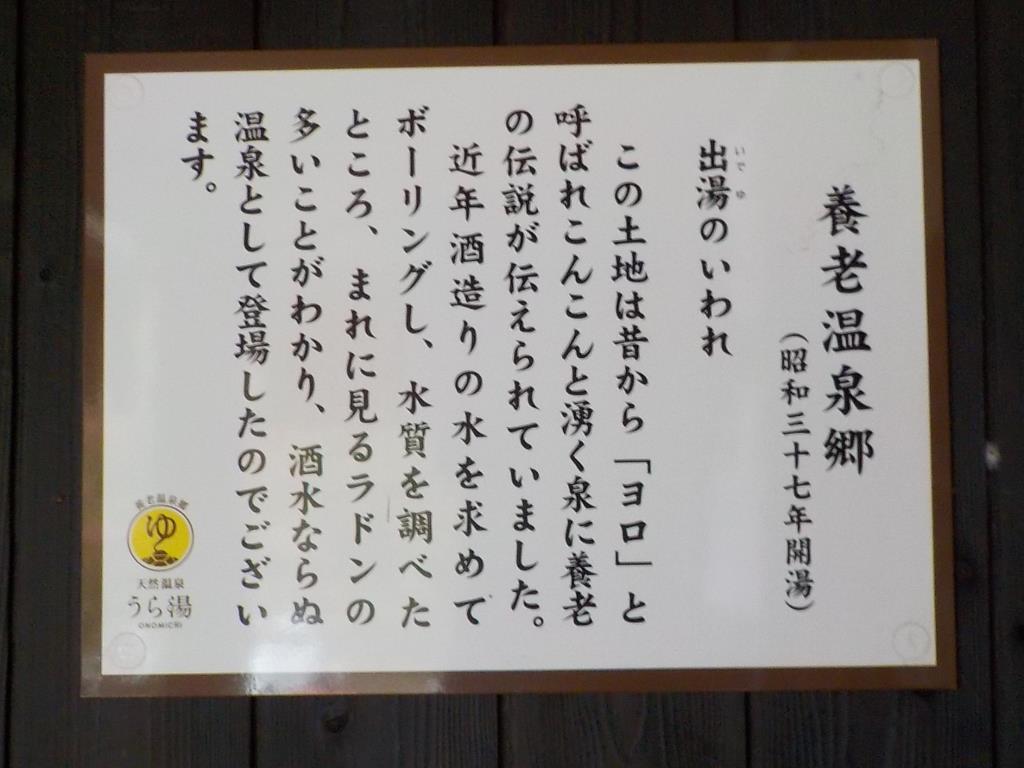 養老温泉郷
（昭和三十七年開湯）
出湯のいわれ
いでゆ
この土地は昔から「ヨロ」と
呼ばれこんこんと湧く泉に養老
の伝説が伝えられていました。
近年酒造りの水を求めて
ボーリングし、水質を調べた
ところ、まれに見るラドンの
多いことがわかり、酒水ならぬ
温泉として登場したのでござい
ます。
養老温泉郷
ゆ
天然温泉
うら湯
ONOMICHI